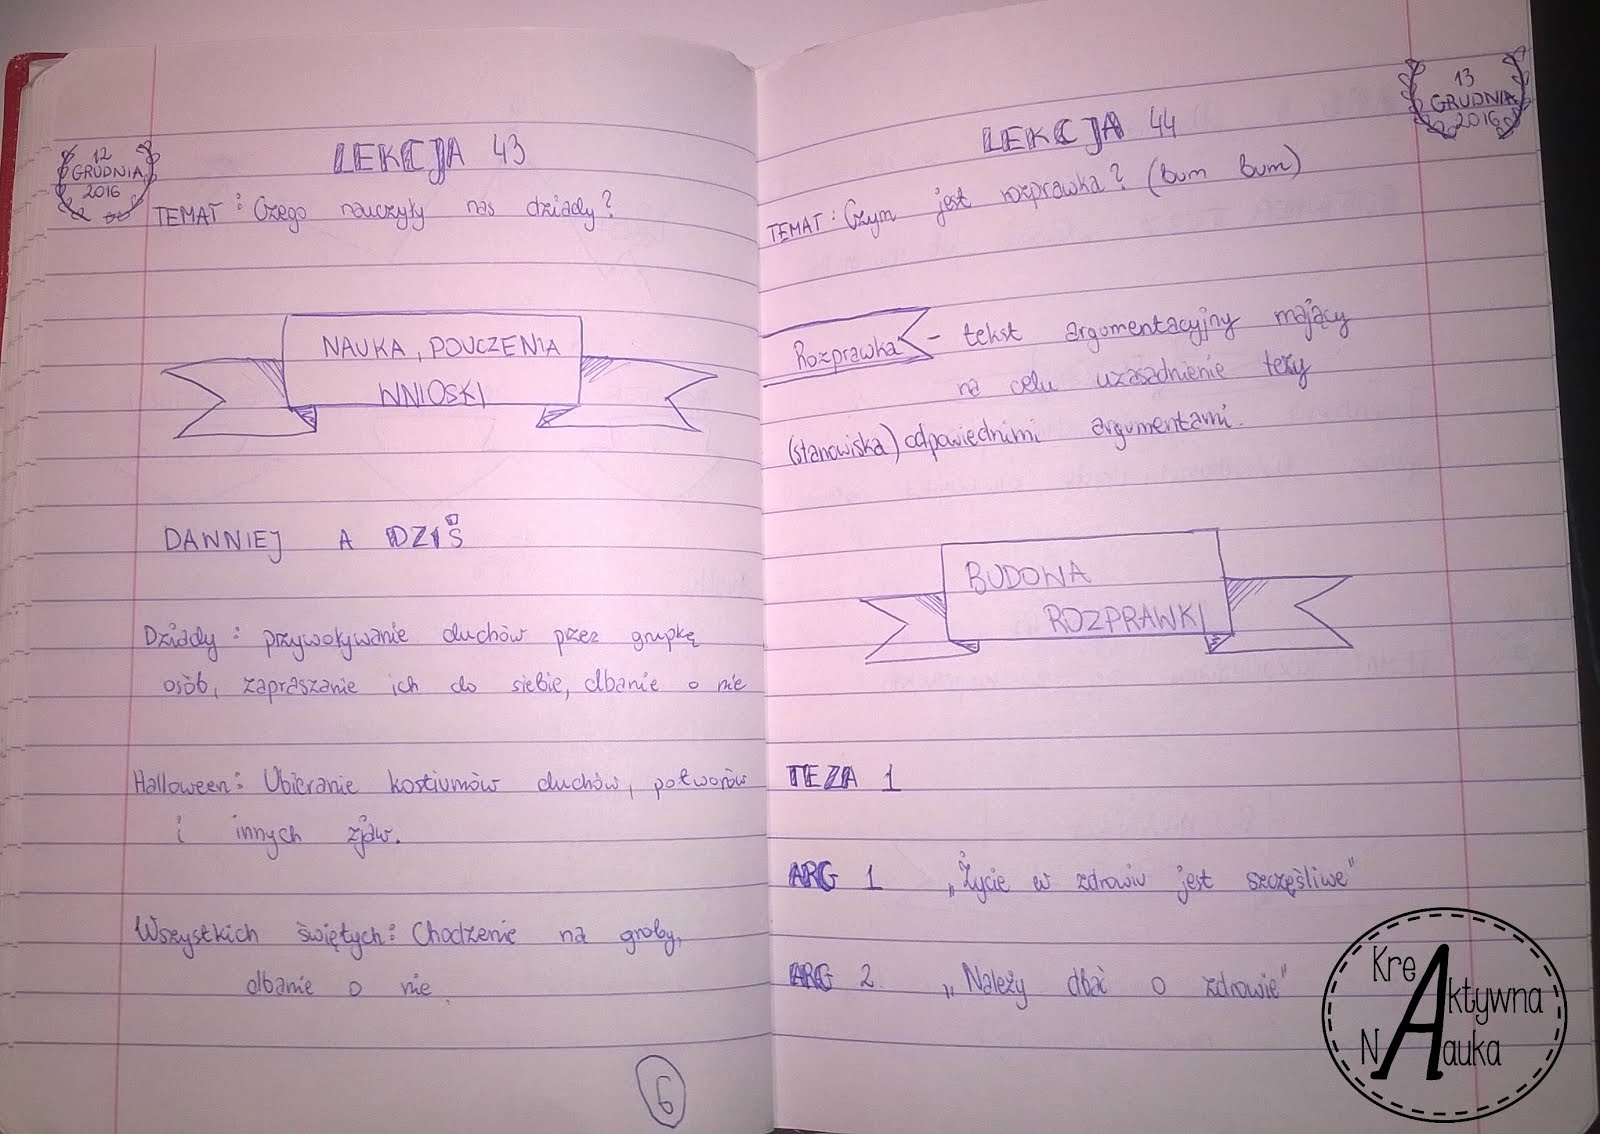 12
GRUDNIA
2016
LEKCJA 43
TEMAT: Czego nauczyły nas dziady?
NAUKA, POUCZENIA
WNIOSKI
DAWNIEJ A DZIŚ
Dziady: przywoływanie duchów przez grupkę
osób, zapraszanie ich do siebie, dbanie o nie
Halloween: Ubieranie kostiumów duchów, potworów
i innych zjaw.
Wszystkich świętych: Chodzenie na groby,
dbanie o nie.
6
13
GRUDNIA
2016
LEKCJA 44
TEMAT: Czym jest rozprawka? (bum bum)
Rozprawka - tekst argumentacyjny mający
na celu uzasadnienie tezy
(stanowiska) odpowiednimi argumentami.
BUDOWA
ROZPRAWKI
TEZA 1
ARG 1 „Życie w zdrowiu jest szczęśliwe"
ARG 2 „Należy dbać o zdrowie"
KreAktywna
NAuka